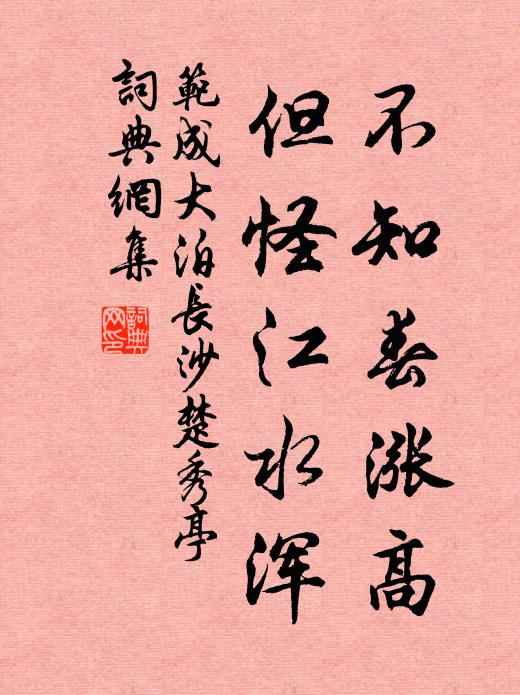 不知春漲高
但怪江水浑
範成大泊長沙楚秀亭
詞典網集
詞典网印